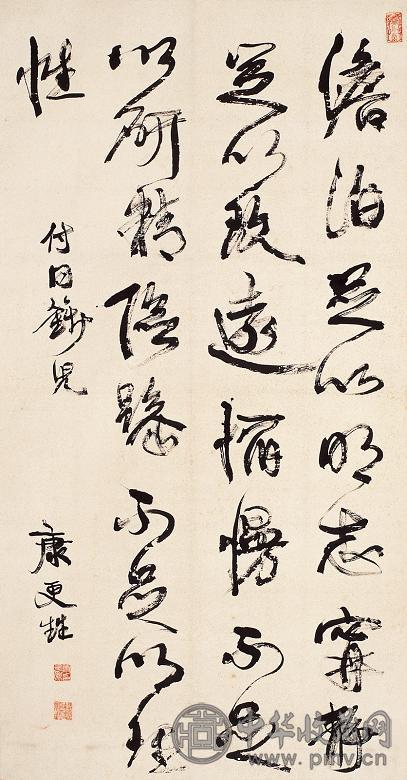 澹泊足以明志寧靜
足以致遠慆慢不足
以研精險躁不足以理
性
付同籛兒
康更甡
中华收藏网
www.pinv.cn